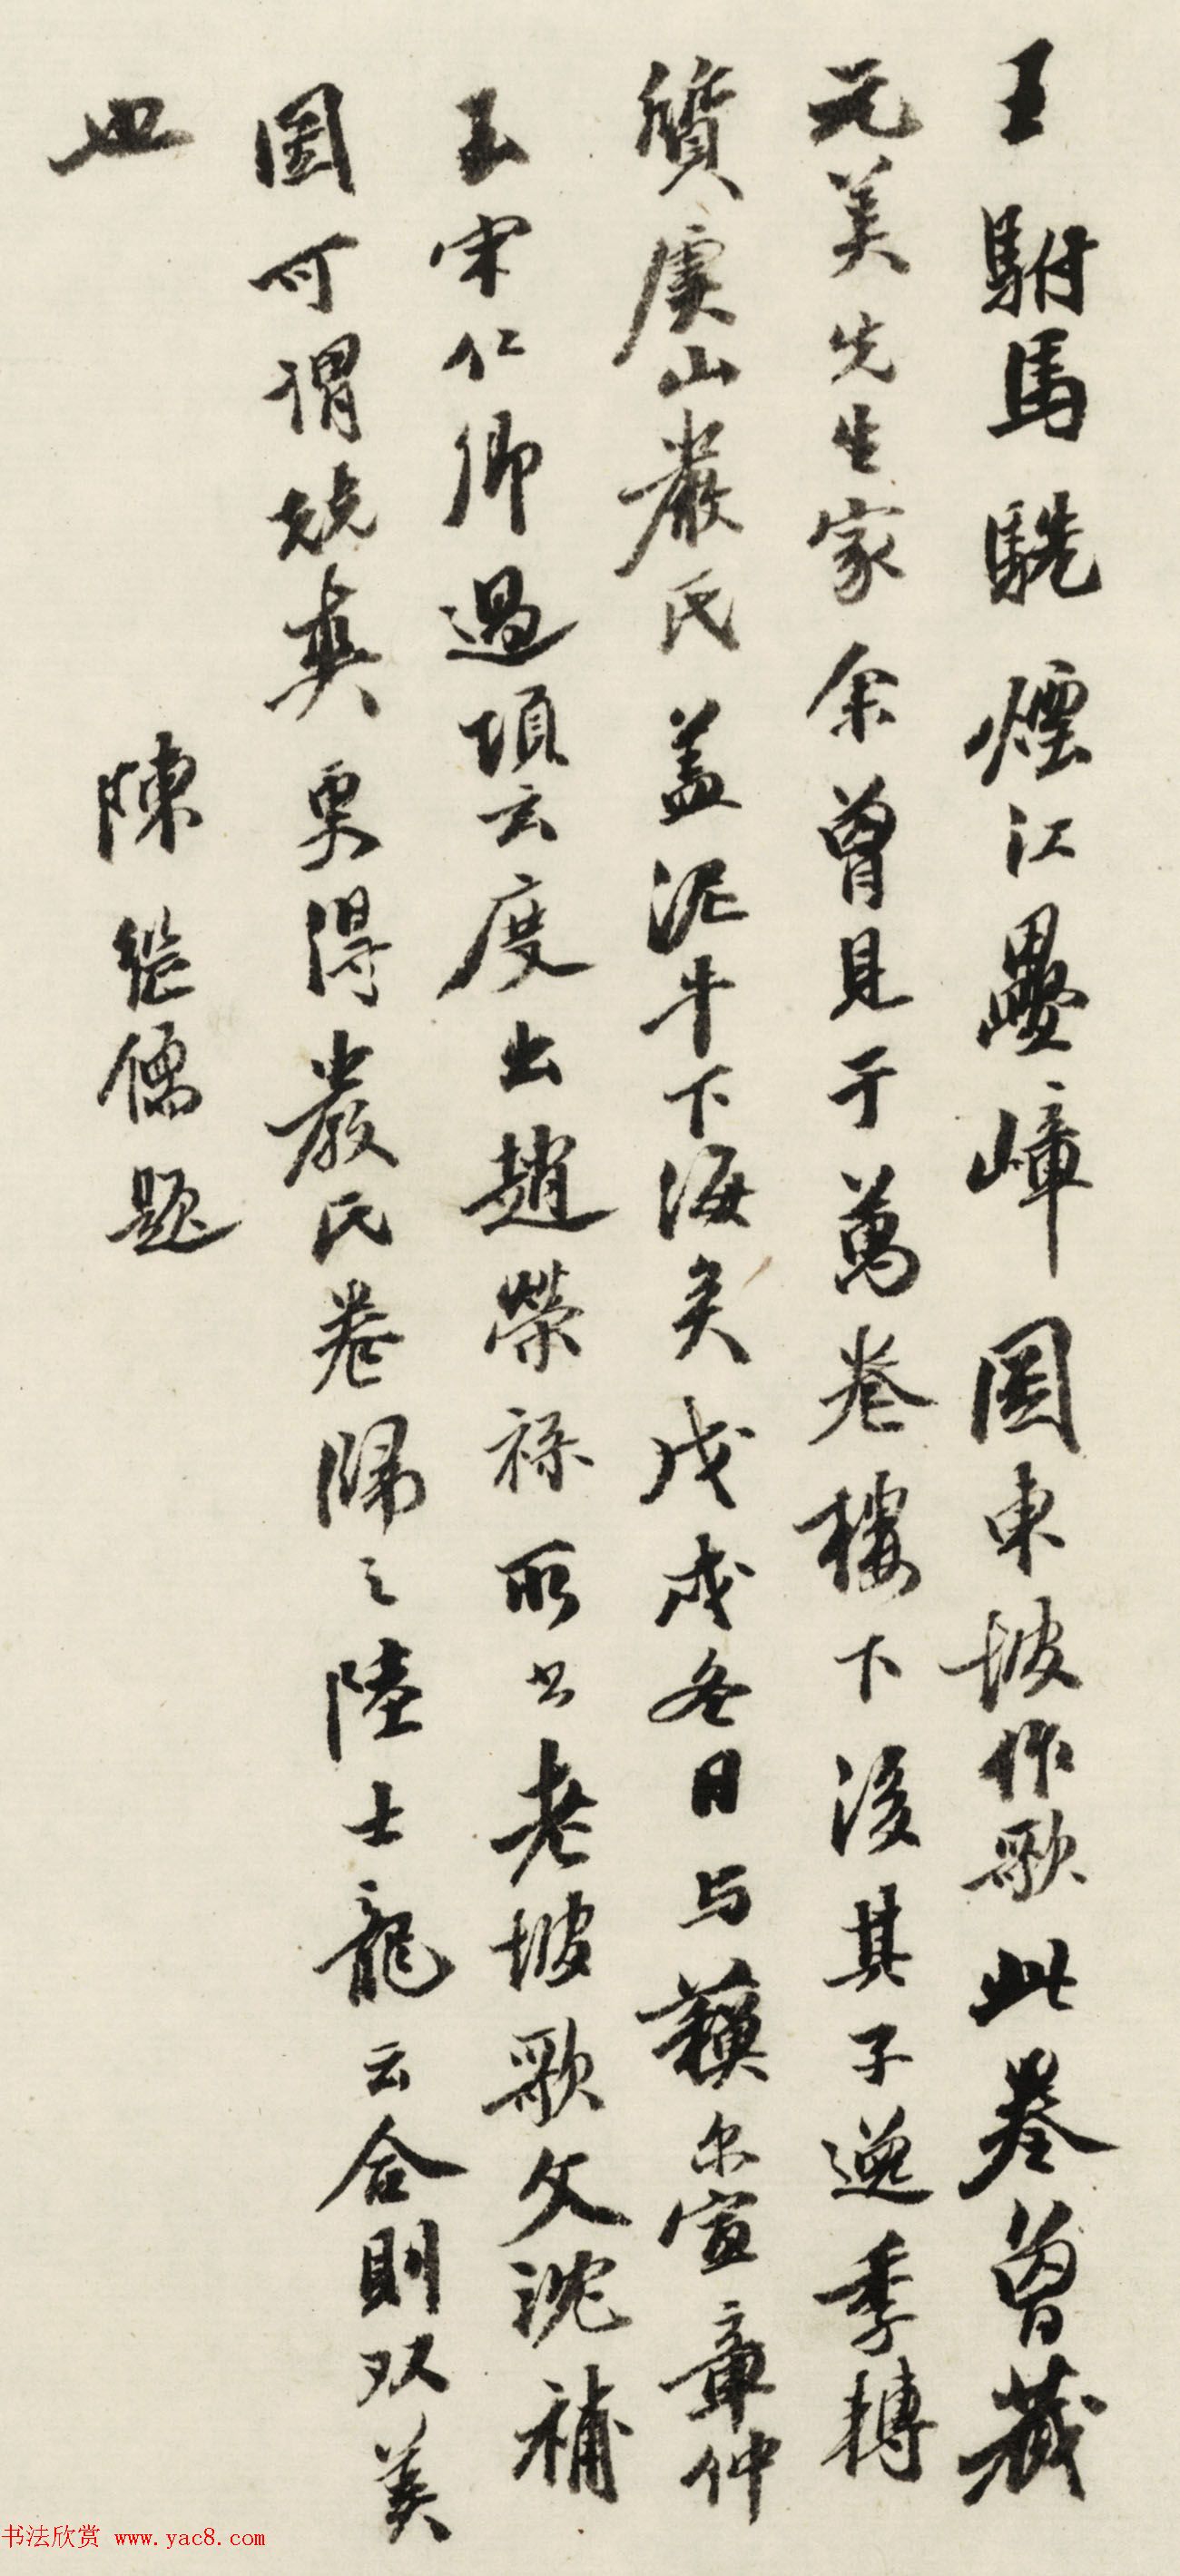 王駙馬駪煙江疊嶂圖東坡作歌此卷曾藏
元美先生家余曾見于萬卷樓下後其子逸季轉
質虞山嚴氏蓋泥牛下海矣戊戌冬日与蘓尔宣章仲
玉宋仁卿過項云度出趙榮祿所书老坡歌文沈補
圖可謂競爽更得嚴氏卷歸之陸士龍云合則双美
也
陳継儒題
书法欣赏 www.yac8.com